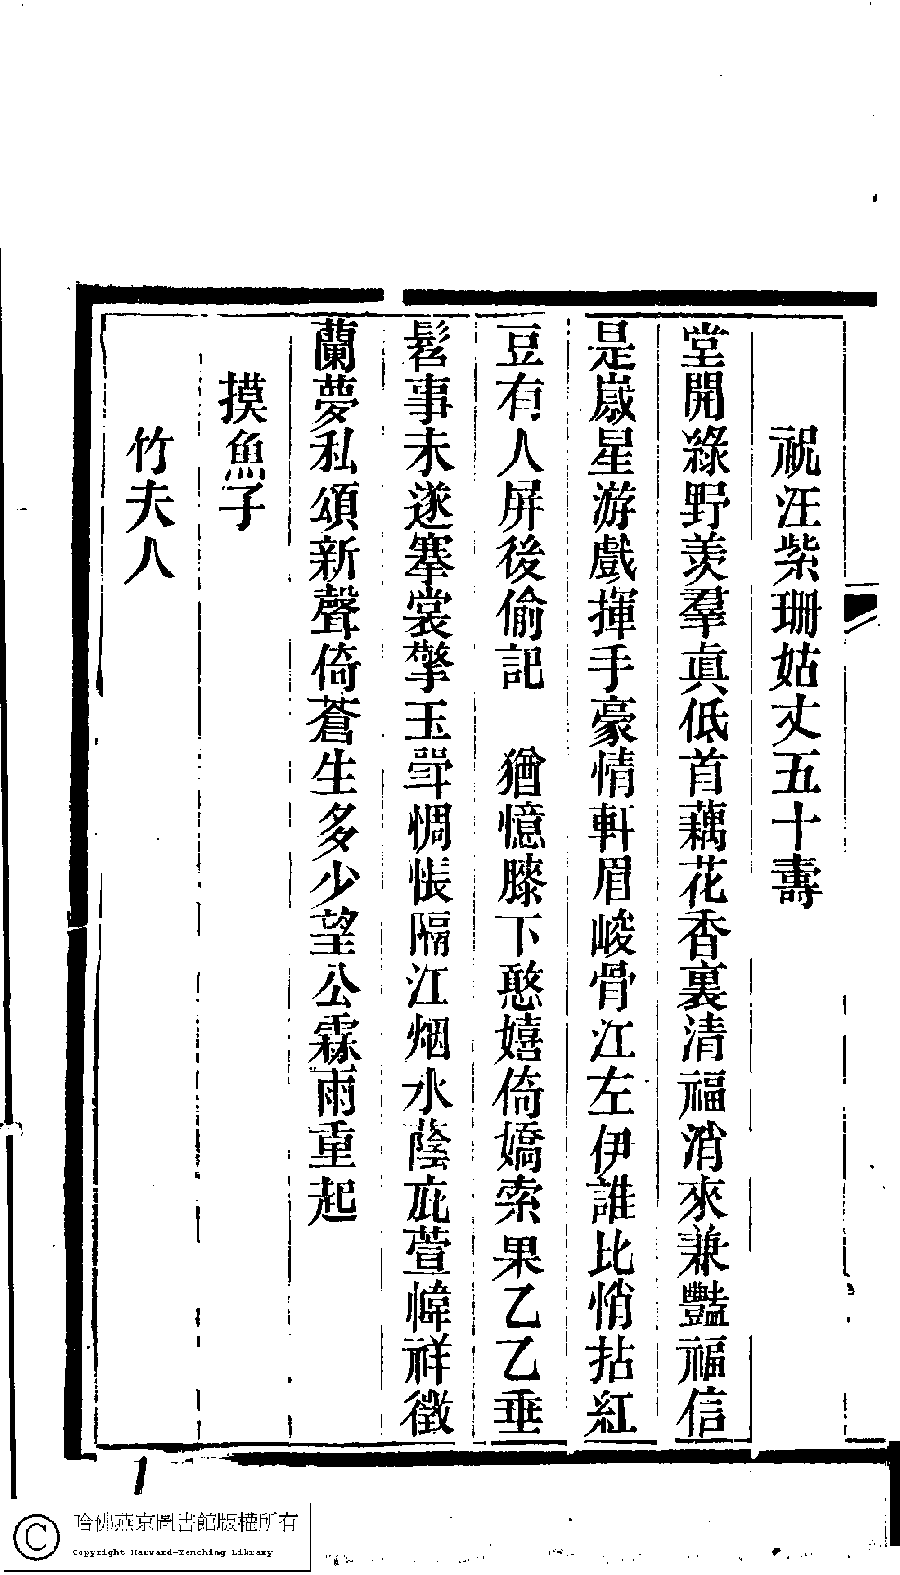 祝汪紫珊姑丈五十壽
堂開綠野羨羣眞低首藕花香裏清福消來兼豔福信
是嵗星游戲揮手豪情軒眉峻骨江左伊誰比悄拈紅
豆有人屏後偷記　猶憶膝下憨嬉倚嬌索果乙乙垂
髫事未遂搴裳擎玉斝惆悵隔江烟水蔭庇萱幃祥徵
蘭夢私頌新聲倚蒼生多少望公霖雨重起
摸魚子
竹夫人
哈佛燕京圖書館版權所有
Copyright Harvard-Yenching Library